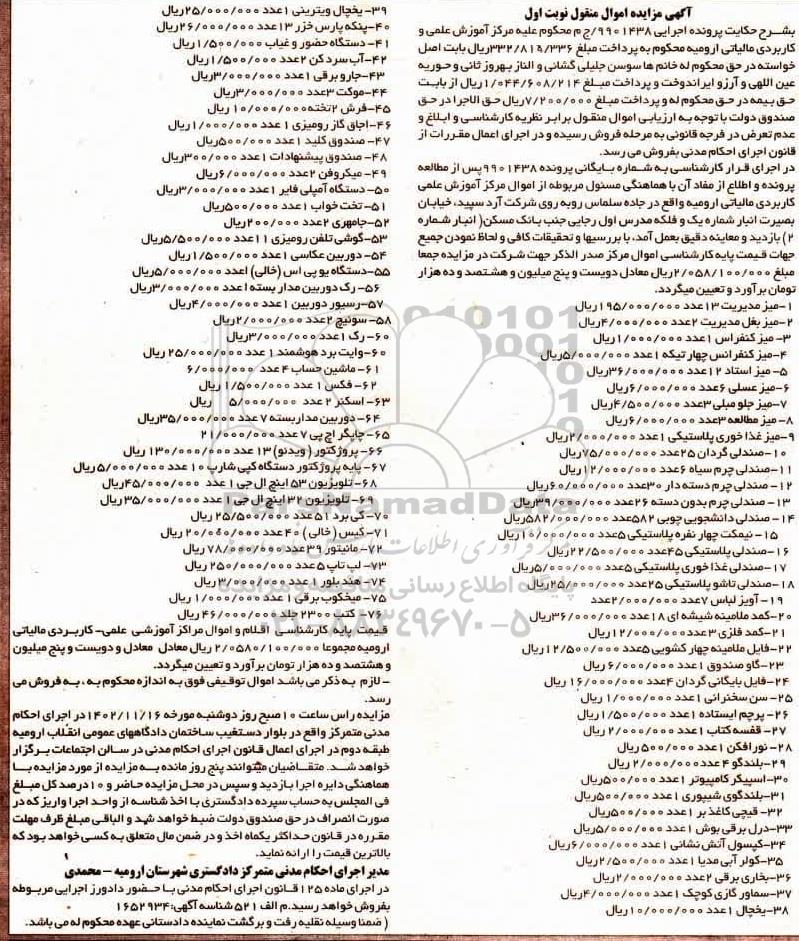 آگهی مزایده اموال منقول نوبت اول
بشرح حکایت پرونده اجرایی ۹۹۰۱۴۳۸/ج م محکوم علیه مرکز آموزش علمی و
کاربردی مالیاتی ارومیه محکوم به پرداخت مبلغ ۳۳۲/۸۱۹/۳۳۶ریال بابت اصل
خواسته در حق محکوم له خانم ها سوسن جلیلی گشانی و الناز بهروز ثانی و حوریه
عین اللهی و آرزو ایراندوخت و پرداخت مبلغ ۱/۰۴۴/۶۰۸/۲۱۴ریال از بابت
حق بیمه در حق محکوم له و پرداخت مبلغ ۷/۲۰۰/۰۰۰ریال حق الاجرا در حق
صندوق دولت با توجه به ارزیابی اموال منقول برابر نظریه کارشناسی و ابلاغ و
عدم تعرض در فرجه قانونی به مرحله فروش رسیده و در اجرای اعمال مقررات از
قانون اجرای احکام مدنی بفروش می رسد.
در اجرای قرار کارشناسی به شماره بایگانی پرونده ۹۹۰۱۴۳۸پس از مطالعه
پرونده و اطلاع از مفاد آن با هماهنگی مسئول مربوطه از اموال مرکز آموزش علمی
کاربردی مالیاتی ارومیه واقع در جاده سلماس روبه روی شرکت آرد سپید، خیابان
بصیرت انبار شماره یک و فلکه مدرس اول رجایی جنب بانک مسکن( انبار شماره
۲) بازدید و معاینه دقیق بعمل آمد، با بررسیها و تحقیقات کافی و لحاظ نمودن جمیع
جهات قیمت پایه کارشناسی اموال مرکز صدر الذکر جهت شرکت در مزایده جمعا
مبلغ ۲/۰۵۸/۱۰۰/۰۰۰ریال معادل دویست و پنج میلیون و هشتصد و ده هزار
تومان برآورد و تعیین میگردد.
۱-میز مدیریت ۱۳عدد ۱۹۵/۰۰۰/۰۰۰ریال
۲-میز بغل مدیریت ۲عدد ۴/۰۰۰/۰۰۰ریال
۳- میز کنفراس ۱عدد ۱/۰۰۰/۰۰۰ریال
۴-میز کنفرانس چهار تیکه ۱عدد ۵/۰۰۰/۰۰۰ریال
۵- میز استاد ۱۲عدد ۳۶/۰۰۰/۰۰۰ریال
۶-میز عسلی ۶عدد ۶/۰۰۰/۰۰۰ریال
۷-میز جلو مبلی ۳عدد ۴/۵۰۰/۰۰۰ریال
۸- میز مطالعه ۳عدد ۶/۰۰۰/۰۰۰ریال
۹-میز غذا خوری پلاستیکی ۱ عدد ۲/۰۰۰/۰۰۰ریال
۱۰-صندلی گردان ۲۵عدد ۷۵/۰۰۰/۰۰۰ریال
۱۱-صندلی چرم سیاه ۶عدد ۱۲/۰۰۰/۰۰۰ریال
۱۲- صندلی چرم دسته دار ۳۰عدد ۶۰/۰۰۰/۰۰۰ریال
۱۳- صندلی چرم بدون دسته ۲۶عدد ۳۹/۰۰۰/۰۰۰ریال
۱۴- صندلی دانشجویی چوبی ۵۸۲عدد ۵۸۲/۰۰۰/۰۰۰ریال
۱۵- نیمکت چهار نفره پلاستیکی ۵عدد ۱۰/۰۰۰/۰۰۰ریال
۱۶-صندلی پلاستیکی ۴۵عدد ۲۲/۵۰۰/۰۰۰ریال
۱۷-صندلی غذا خوری پلاستیکی ۵عدد ۵/۰۰۰/۰۰۰ریال
۱۸-صندلی تاشو پلاستیکی ۲۵عدد ۲۵/۰۰۰/۰۰۰ریال
۱۹- آویز لباس ۷عدد ۲/۰۰۰/۰۰۰عدد
۲۰-کمد ملامینه شیشه ای ۱۸عدد ۳۶/۰۰۰/۰۰۰ریال
۲۱-کمد فلزی ۳عدد ۱۲/۰۰۰/۰۰۰ریال
۲۲-فایل ملامینه چهار کشویی ۵عدد ۱۲/۵۰۰/۰۰۰ریال
۲۳-گاو صندوق ۱عدد ۶/۰۰۰/۰۰۰ ریال
۲۴-فایل بایگانی گردان ۴عدد ۱۶/۰۰۰/۰۰۰ ریال
۲۵-سن سخنرانی ۱عدد ۱/۰۰۰/۰۰۰ ریال
۲۶- پرچم ایستاده ۱عدد ۱/۵۰۰/۰۰۰ریال
۲۷- قفسه کتاب ۱عدد ۲/۰۰۰/۰۰۰ ریال
۲۸-نورافکن ۱عدد ۵۰۰/۰۰۰ ریال
۲۹-بلندگو ۴عدد ۲/۰۰۰/۰۰۰ ریال
۳۰-اسپیکر کامپیوتر ۱عدد ۵۰۰/۰۰۰ریال
۳۱-بلندگوی شیپوری ۱عدد ۵۰۰/۰۰۰ریال
۳۲- قیچی کاغذ بر ۱عدد ۵۰۰/۰۰۰ریال
۳۳-درل برقی بوش ۱عدد ۵/۰۰۰/۰۰۰ریال
۳۴-کپسول آتش نشانی ۱عدد ۶/۰۰۰/۰۰۰ریال
۳۵-کولر آبی مدیا ۱عدد ۲/۵۰۰/۰۰۰ریال
۳۶-بخاری برقی ۲عدد ۲/۰۰۰/۰۰۰ریال
۳۷-سماور گازی کوچک ۱عدد ۴/۰۰۰/۰۰۰ریال
۳۸-یخچال ۱عدد ۱۰/۰۰۰/۰۰۰ریال
۳۹- یخچال ویترینی ۱عدد ۲۵/۰۰۰/۰۰۰ریال
۴۰-پنکه پارس خزر ۱۳عدد ۲۶/۰۰۰/۰۰۰ریال
۴۱- دستگاه حضور و غیاب ۱/۵۰۰/۰۰۰ریال
۴۲-آب سرد کن ۲عدد ۱/۵۰۰/۰۰۰ریال
۴۳-جارو برقی ۱عدد ۳/۰۰۰/۰۰۰ریال
۴۴-موکت ۳عدد ۳/۰۰۰/۰۰۰ریال
۴۵-فرش ۲تخته ۱۰/۰۰۰/۰۰۰ریال
۴۶-اجاق گاز رومیزی ۱ عدد ۱/۰۰۰/۰۰۰ریال
۴۷- صندوق کلید ۱عدد ۵۰۰/۰۰۰ریال
۴۸- صندوق پیشنهادات ۱ عدد ۳۰۰/۰۰۰ریال
۴۹- میکروفن ۲عدد ۶/۰۰۰/۰۰۰ریال
۵۰-دستگاه آمپلی فایر ۱عدد ۳/۰۰۰/۰۰۰ریال
۵۱- تخت خواب ۱عدد ۵۰۰/۰۰۰ریال
۵۲-جامهری ۲عدد ۲۰۰/۰۰۰ریال
۵۳-گوشی تلفن رومیزی ۱۱عدد ۵/۵۰۰/۰۰۰ریال
۵۴- دوربین عکاسی ۱عدد ۱/۵۰۰/۰۰۰ریال
۵۵-دستگاه یو پی اس (خالی) ۱عدد ۵/۰۰۰/۰۰۰ریال
۵۶- رک دوربین مدار بسته ۱عدد ۳/۰۰۰/۰۰۰ریال
۵۷-رسیور دوربین ۱عدد ۴/۰۰۰/۰۰۰ریال
۵۸- سوئیچ ۲عدد ۲/۰۰۰/۰۰۰ریال
۶۰- رک ۱عدد ۳/۰۰۰/۰۰۰ریال
۶۰-وایت برد هوشمند ۱عدد ۲۵/۰۰۰/۰۰۰ ریال
۶۱- ماشین حساب ۴ عدد ۶/۰۰۰/۰۰۰
۶۲- فکس ۱ عدد ۱/۵۰۰/۰۰۰ ریال
۶۳-اسکنر ۲ عدد ۵/۰۰۰/۰۰۰ ریال
۶۴- دوربین مداربسته ۷عدد ۳۵/۰۰۰/۰۰۰ریال
۶۵-چاپگر اچ پی ۷عدد ۲۱/۰۰۰/۰۰۰
۶۶- پروژکتور ( ویدئو) ۱۳ عدد ۱۳۰/۰۰۰/۰۰۰ ریال
۶۷- پایه پروژکتور دستگاه کپی شارپ ۱۰ عدد ۵/۰۰۰/۰۰۰ ریال
۶۸- تلویزیون ۵۳ اینچ ال جی ۱عدد ۴۵/۰۰۰/۰۰۰ریال
۶۹- تلویزیون ۳۲اینچ ال جی ۱عدد ۳۵/۰۰۰/۰۰۰ریال
۷۰-کی برد ۵۱عدد ۲۵/۵۰۰/۰۰۰ ریال
۷۱-کیس (خالی) ۴۰عدد ۲۰/۰۰۰/۰۰۰ ریال
۷۲-مانیتور ۳۹عدد ۷۸/۰۰۰/۰۰۰ریال
۷۳- لپ تاپ ۵عدد ۲۵۰/۰۰۰/۰۰۰ ریال
۷۴- هند بلور ۱عدد ۳/۰۰۰/۰۰۰ریال
۷۵- میخکوب برقی ۱عدد ۱/۰۰۰/۰۰۰ ریال
۷۶- کتب ۲۳۰۰ جلد ۴۶/۰۰۰/۰۰۰ ریال
قیمت پایه کارشناسی اقلام و اموال مراکز آموزشی علمی- کاربردی مالیاتی
ارومیه مجموعا ۲/۰۵۸۰/۱۰۰/۰۰۰ ریال معادل معادل و دویست و پنج میلیون
و هشتصد و ده هزار تومان برآورد و تعیین میگردد.
- لازم به ذکر می باشد اموال توقیفی فوق به اندازه محکوم به، به فروش می
رسد.
مزایده راس ساعت ۱۰صبح روز دوشنبه مورخه ۱۴۰۲/۱۱/۱۶در اجرای احکام
مدنی متمرکز واقع در بلوار دستغیب ساختمان دادگاههای عمومی انقلاب ارومیه
طبقه دوم در اجرای اعمال قانون اجرای احکام مدنی در سالن اجتماعات برگزار
خواهد شد. متقاضیان میتوانند پنج روز مانده به مزایده از مورد مزایده با
هماهنگی دایره اجرا بازدید و سپس در محل مزایده حاضر و ۱۰درصد کل مبلغ
فی المجلس به حساب سپرده دادگستری با اخذ شناسه از واحد اجرا واریز که در
صورت انصراف در حق صندوق دولت ضبط خواهد شد و الباقی مبلغ ظرف مهلت
مقرره در قانون حداکثر یکماه اخذ و در ضمن مال متعلق به کسی خواهد بود که
بالاترین قیمت را ارائه نماید.
مدیر اجرای احکام مدنی متمرکز دادگستری شهرستان ارومیه – محمدی
در اجرای ماده ۱۲۵قانون اجرای احکام مدنی با حضور دادورز اجرایی مربوطه
بفروش خواهد رسید.م الف ۵۲۱ شناسه آگهی: ۱۶۵۲۹۳۴
( ضمنا وسیله نقلیه رفت و برگشت نماینده دادستانی عهده محکوم له می باشد.
ParsNamadData
پایگاه اطلاع رسانی مناقصه و مزایده
۰۲۱-۸۸۳۴۹۶۷۰-۵